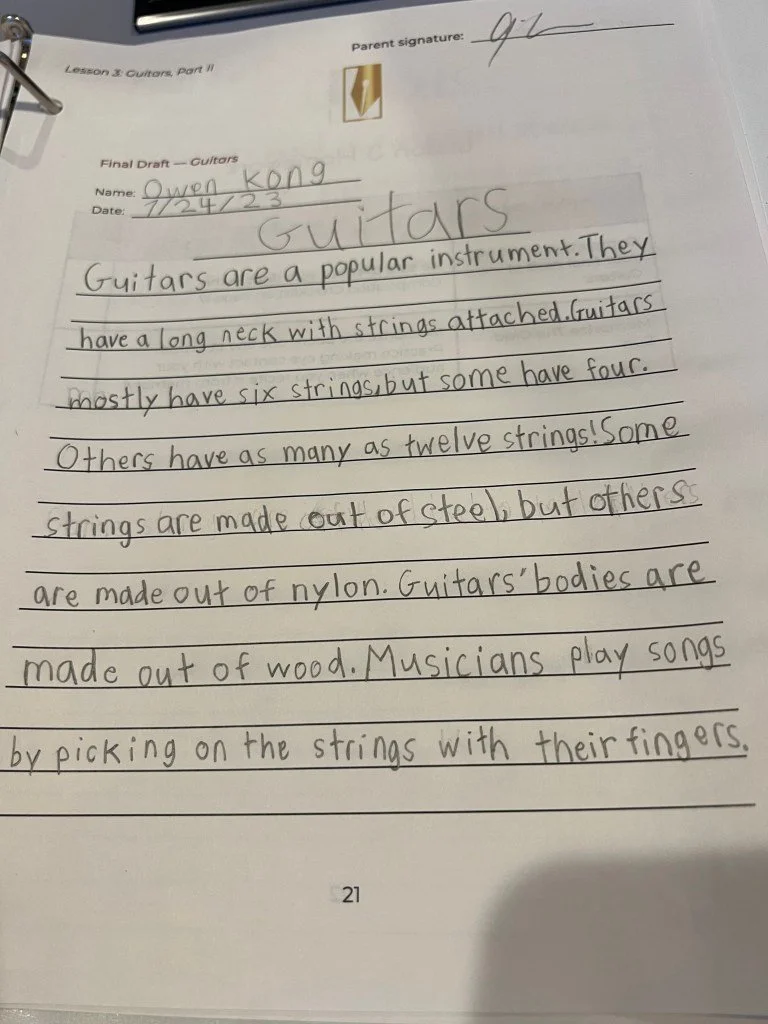 Parent signature:
Lesson 3: Guitars, Part II
Final Draft — Guitars
Name: Owen Kong
Date: 7/24/23
Guitars
Guitars are a popular instrument. They
have a long neck with strings attached. Guitars
mostly have six strings, but some have four.
Others have as many as twelve strings! Some
strings are made out of steel, but others
are made out of nylon. Guitars' bodies are
made out of wood. Musicians play songs
by picking on the strings with their fingers.
21